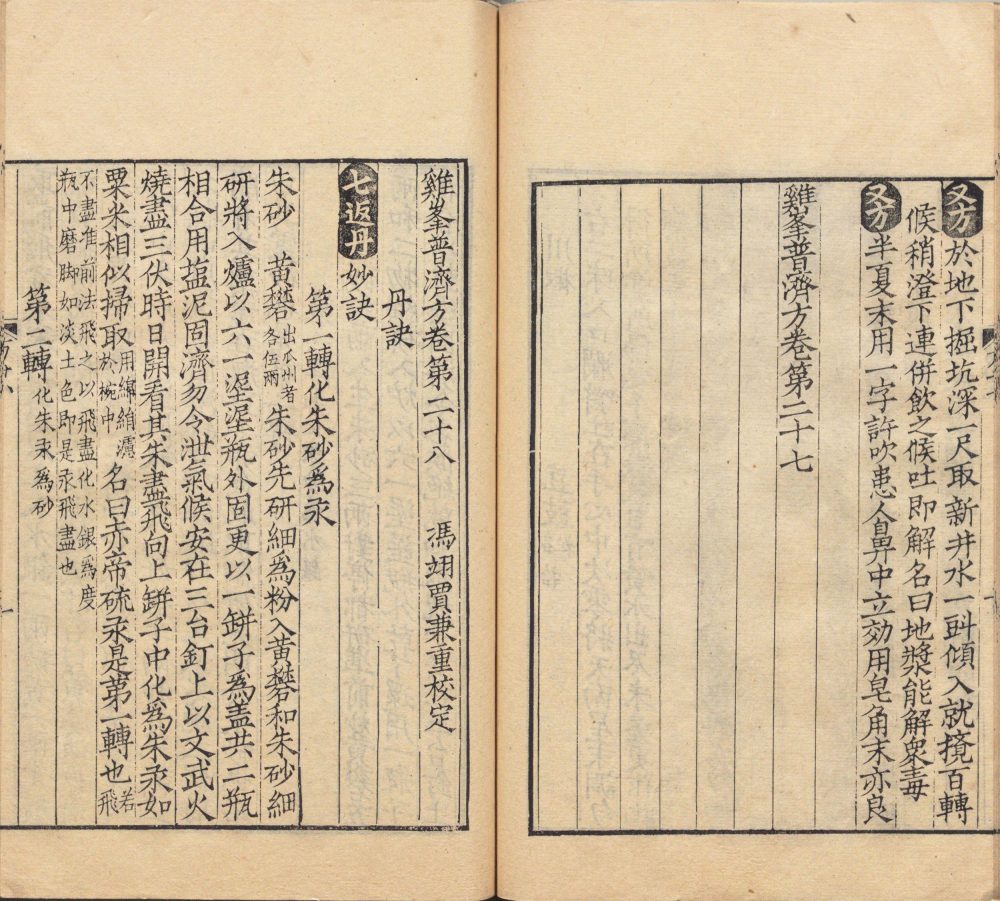 又方於地下掘坑深一尺取新井水一㪷傾入就攪百轉
候稍澄下連併飲之候吐即解名曰地漿能解衆毒
又方半夏末用一字許吹患人鼻中立効用皂角末亦良
雞峯普濟方卷第二十七
雞峯普濟方卷第二十八　馮翊賈兼重校定
丹訣
七返丹妙訣
第一轉化朱砂爲汞
朱砂　黃礬出瓜州者各伍兩　朱砂先研細爲粉入黃礬和朱砂細
研將入爐以六一埿埿瓶外固更以一缾子爲盖共二瓶
相合用塩泥固濟勿令泄氣候安在三台釘上以文武火
燒盡三伏時日開看其朱盡飛向上缾子中化爲朱汞如
粟米相似掃取用綿絹濾於椀中名曰赤帝硫汞是第一轉也若飛
不盡准前法飛之以飛盡化水銀爲度
瓶中磨脚如淡土色即是汞飛盡也
第二轉化朱汞爲砂